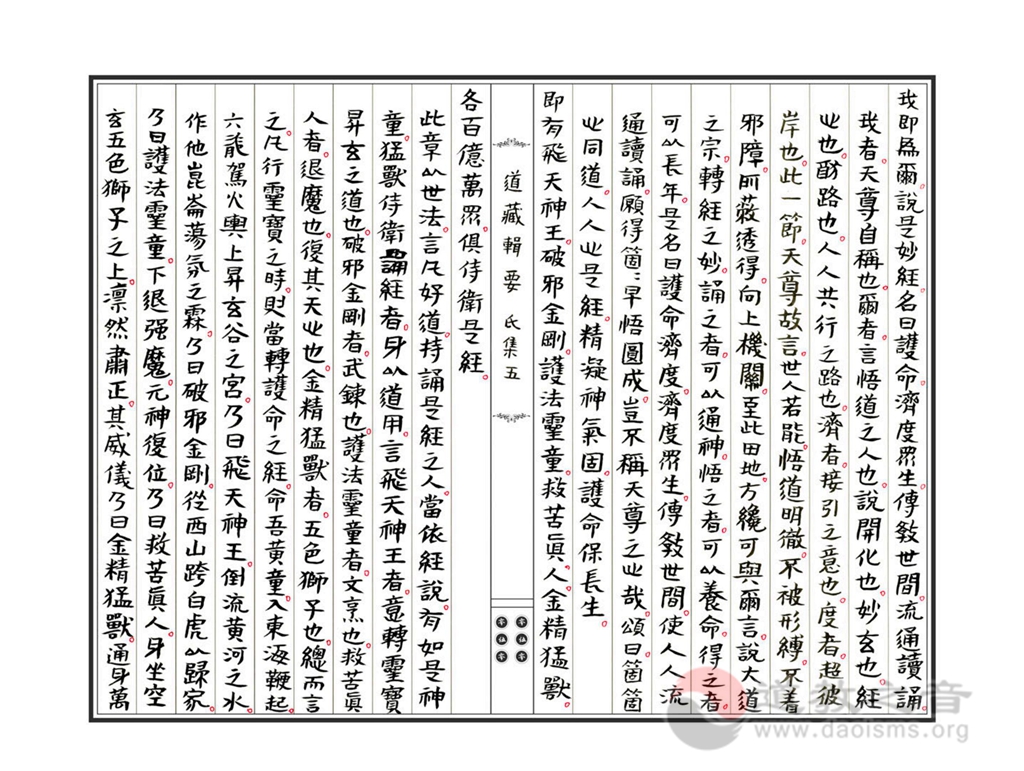 我即爲爾說是妙經名曰護命濟度眾生傳教世間流通讀誦
我者天尊自稱也爾者言悟道之人也說開化也妙玄也經
也也路也人人共行之路也濟者接引之意也度者超彼
岸也此一節天尊故言世人若能悟道明徹不被形縛不着
邪障所蔽透得向上機關至此田地方纔可與爾言說大道
之宗轉經之妙誦之者可以通神悟之者可以養命得之者
可以長年是名曰護命濟度濟度眾生傳教世間使人人流
通讀誦願得箇箇早悟圓成豈不稱天尊之心哉頌曰箇箇
心同道人人心是經精凝神氣固護命保長生
即有飛天神王破邪金剛護法靈童救苦眞人金精猛獸
道藏輯要 氐集五
各百億萬眾俱侍衛是經
此章以世法言凡好道持誦是經之人當依經說有如是神
童猛獸侍衛誦經者身以道用言飛天神王者意轉靈寶
昇玄之道也破邪金剛者武鍊也護法靈童者文烹也救苦眞
人者退魔也復其天心也金精猛獸者五色獅子也總而言
之凡行靈寶之時則當轉護命之經命吾黃童入東海鞭起
六龍駕火輿上昇玄谷之宮乃曰飛天神王倒流黃河之水
作他崑崙蕩氛之霖乃曰破邪金剛從西山跨白虎以歸家
乃曰護法靈童下退强魔元神復位乃曰救苦眞人身坐空
玄五色獅子之上凛然肅正其威儀乃曰金精猛獸通身萬
道教之音
www.daoisms.org